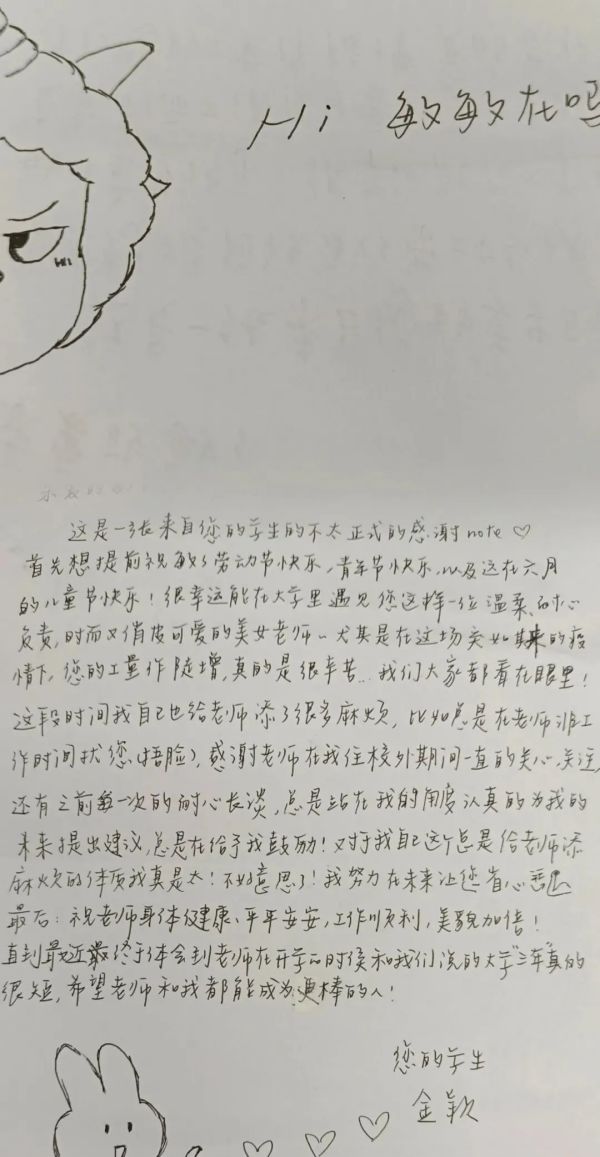 Hi 敏敏在吗
Hi
这是一张来自您的学生的不太正式的感谢note♡
首先想提前祝敏敏劳动节快乐,青年节快乐,以及远在六月
的儿童节快乐!很幸运能在大学里遇见您这样一位温柔、耐心
负责,时而又俏皮可爱的美女老师~尤其是在这场突如其来的疫
情下,您的工量作陡增,真的是很辛苦...我们大家都看在眼里!
这段时间我自己也给老师添了很多麻烦,比如总是在老师非工
作时间扰您(捂脸),感谢老师在我住校外期间一直的关心、关注,
还有之前每一次的耐心长谈,总是站在我的角度认真的为我的
未来提出建议,总是在给予我鼓励!对于我自己这个总是给老师添
麻烦的体质我真是太!不好意思了!我努力在未来让您省心
最后:祝老师身体健康、平平安安,工作顺利,美貌加倍!
直到最近最终于体会到老师在开学的时候和我们说的大学"三年"真的
很短,希望老师和我都能成为更棒的人!
您的学生
金颖